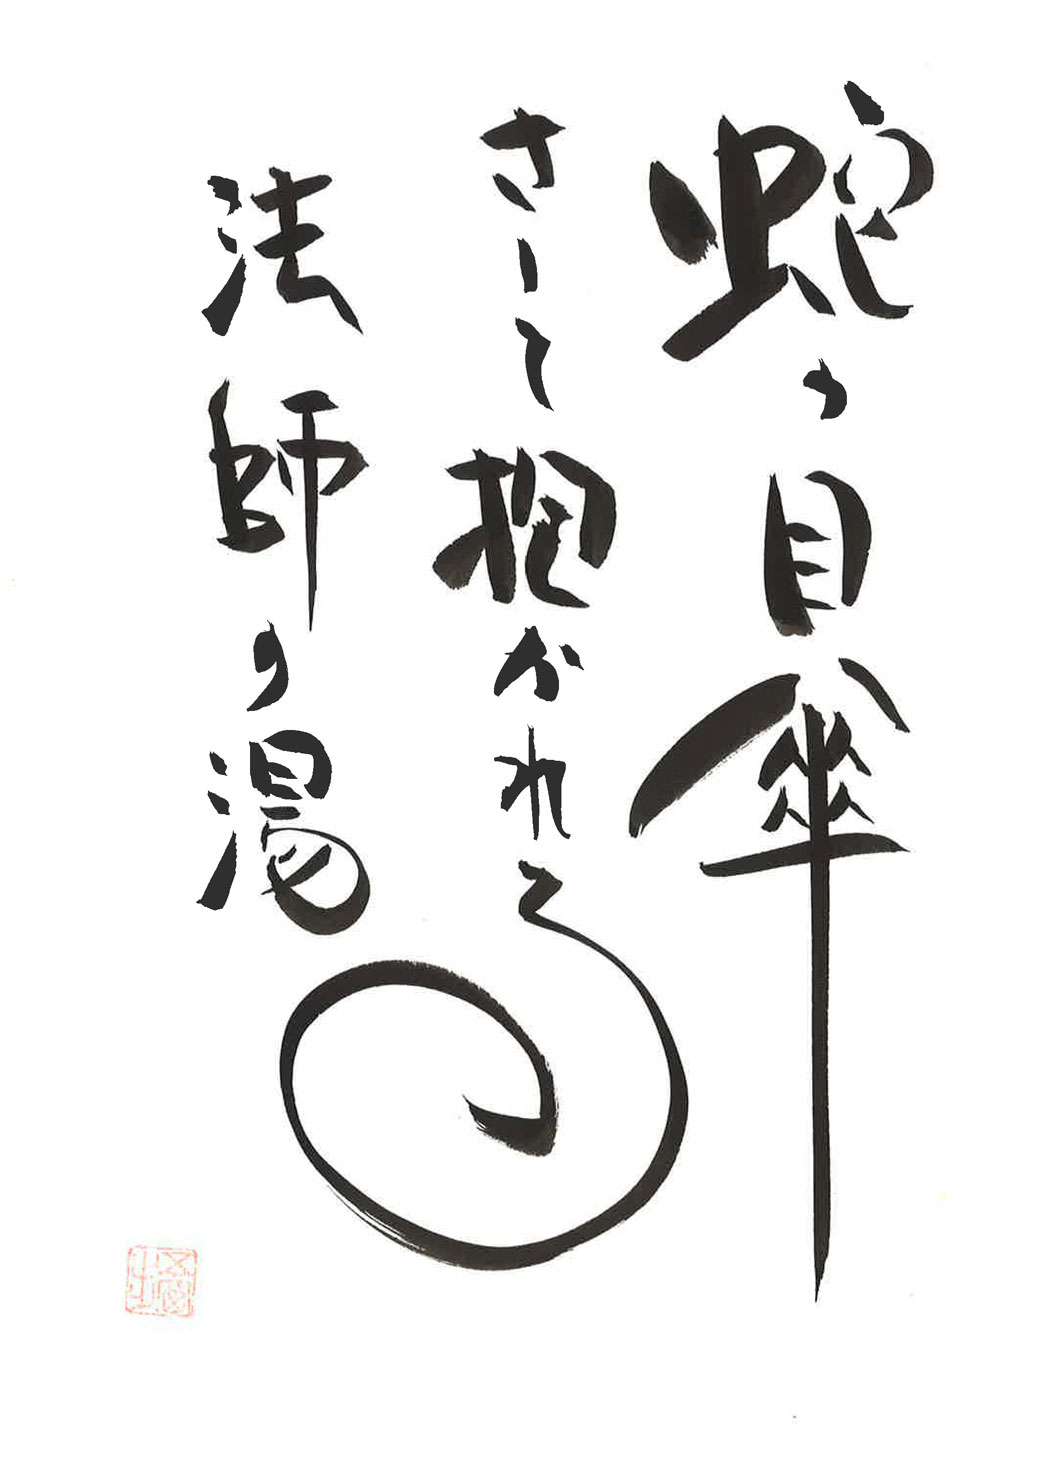 蛇の目傘
さして抱かれて
法師の湯